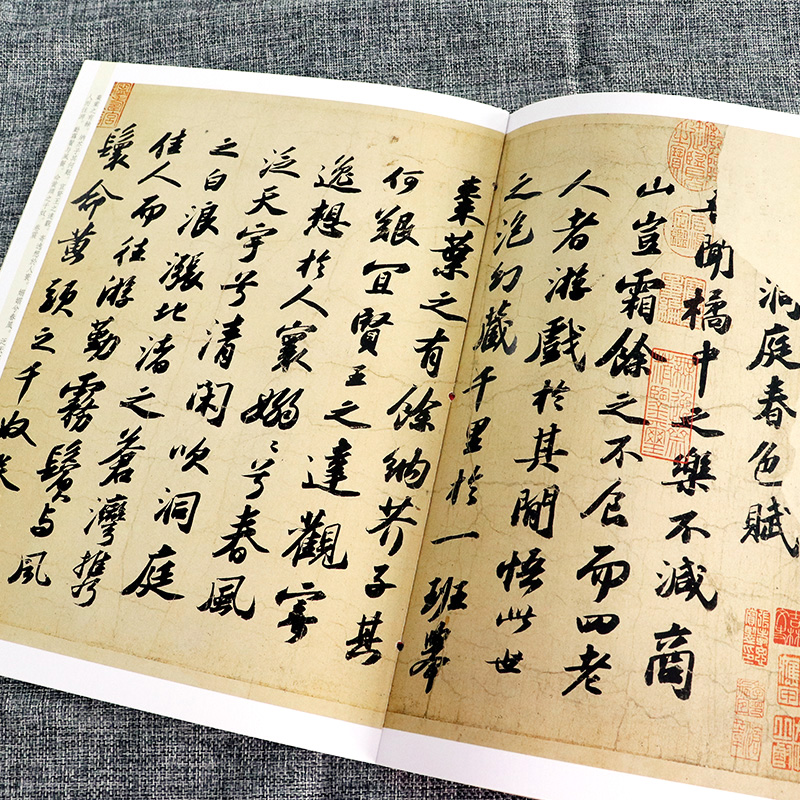 洞庭春色賦
吾聞橘中之樂不減商
山豈霜餘之不食而四老
人者游戲於其間悟此世
之泡幻藏千里於一班舉
棗葉之有餘納芥子其
何艱宜賢王之達觀寄
逸想於人寰嫋〻兮春風
泛天宇兮清閑吹洞庭
之白浪漲北渚之蒼灣攜
佳人而往游勤霧鬢與風
鬟命黃頭之千奴